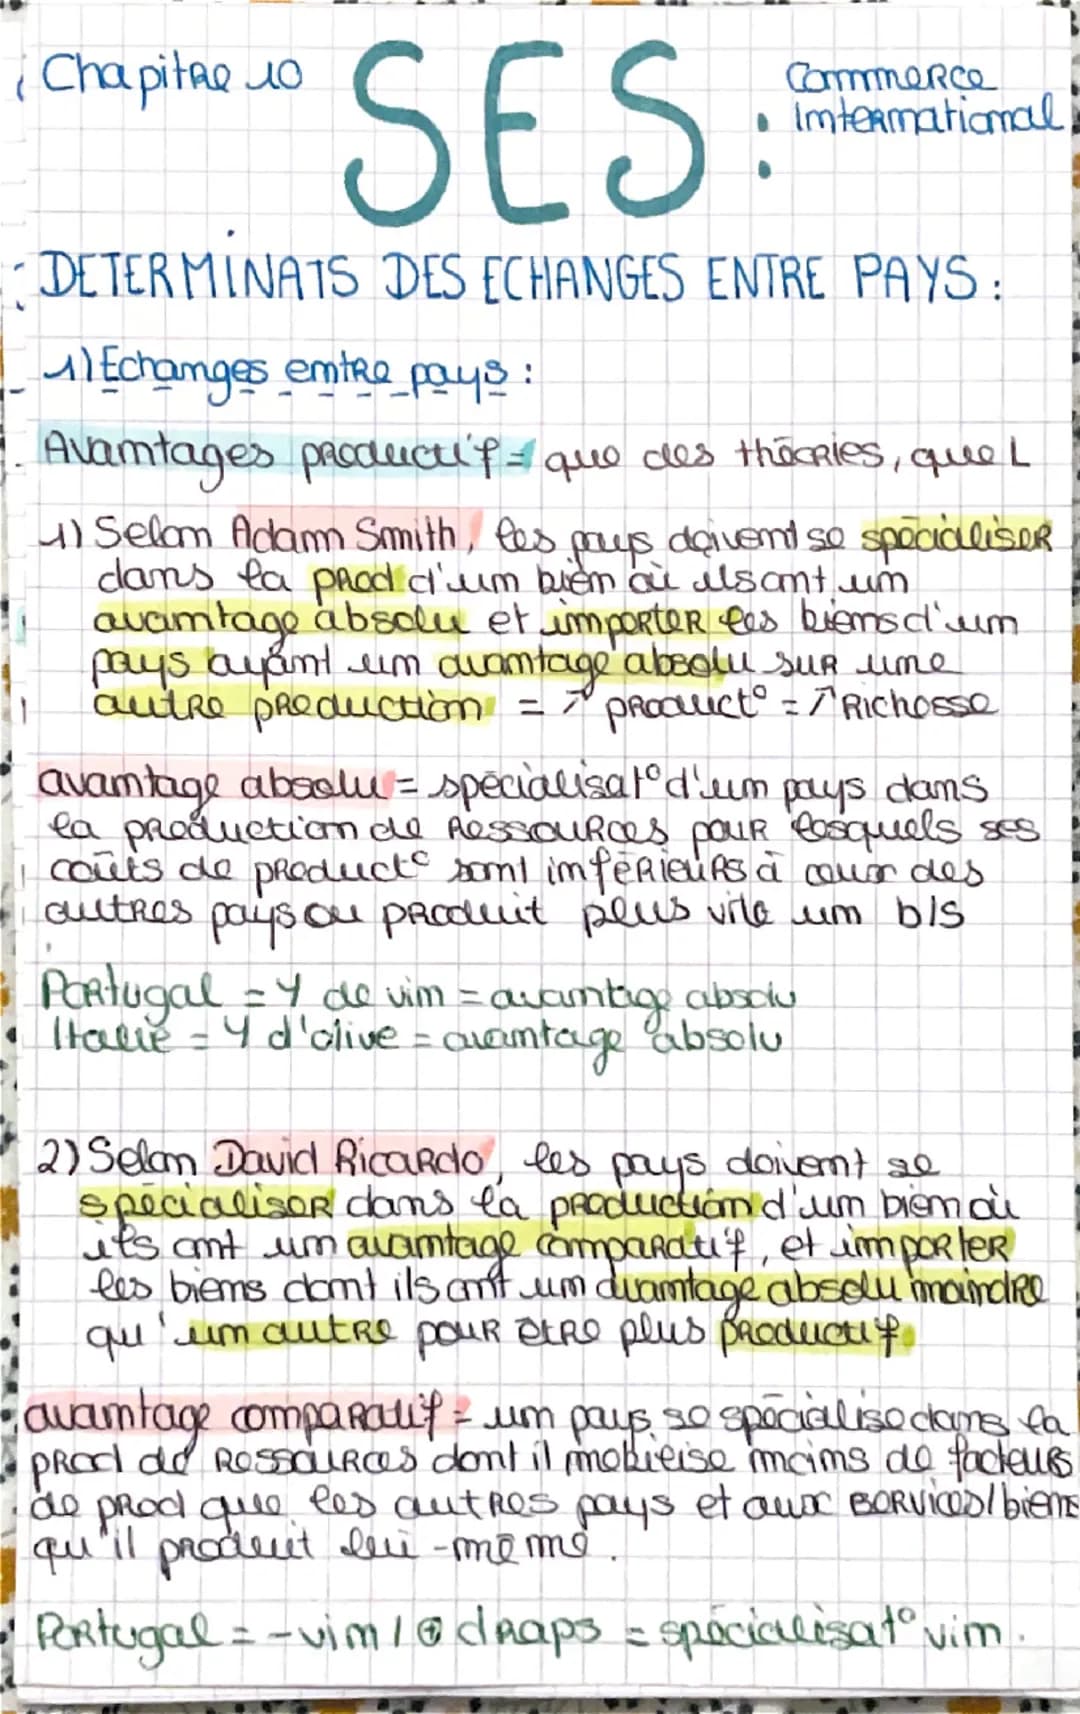 Chapitre 10
SES :
Commerce
International
DETERMINATS DES ECHANGES ENTRE PAYS :
1) Echanges entre pays :
Avantages productif = que des théories, que L
1) Selon Adam Smith, les pays doivent se spécialiser
dans la prod d'un bien où ils ont un
avantage absolu et importer les biens d'un
pays ayant un avantage absolu sur une
autre production = ↗ product° = ↗ Richesse
avantage absolu = spécialisat° d'un pays dans
la production de Ressources pour lesquels ses
coûts de product° sont inférieurs à ceux des
autres pays ou produit plus vite un b/s
Portugal = Y de vin = avantage absolu
Italie = Y d'olive = avantage absolu
2) Selon David Ricardo, les pays doivent se
spécialiser dans la production d'un bien où
ils ont un avantage comparatif, et importer
les biens dont ils ont un avantage absolu moindre
qu'un autre pour être plus productif.
avantage comparatif = un pays se spécialise dans la
prod de Ressources dont il mobilise moins de facteurs
de prod que les autres pays et aux services/biens
qu'il produit lui-même.
Portugal = - vin / ⊕ draps = spécialisat° vin.